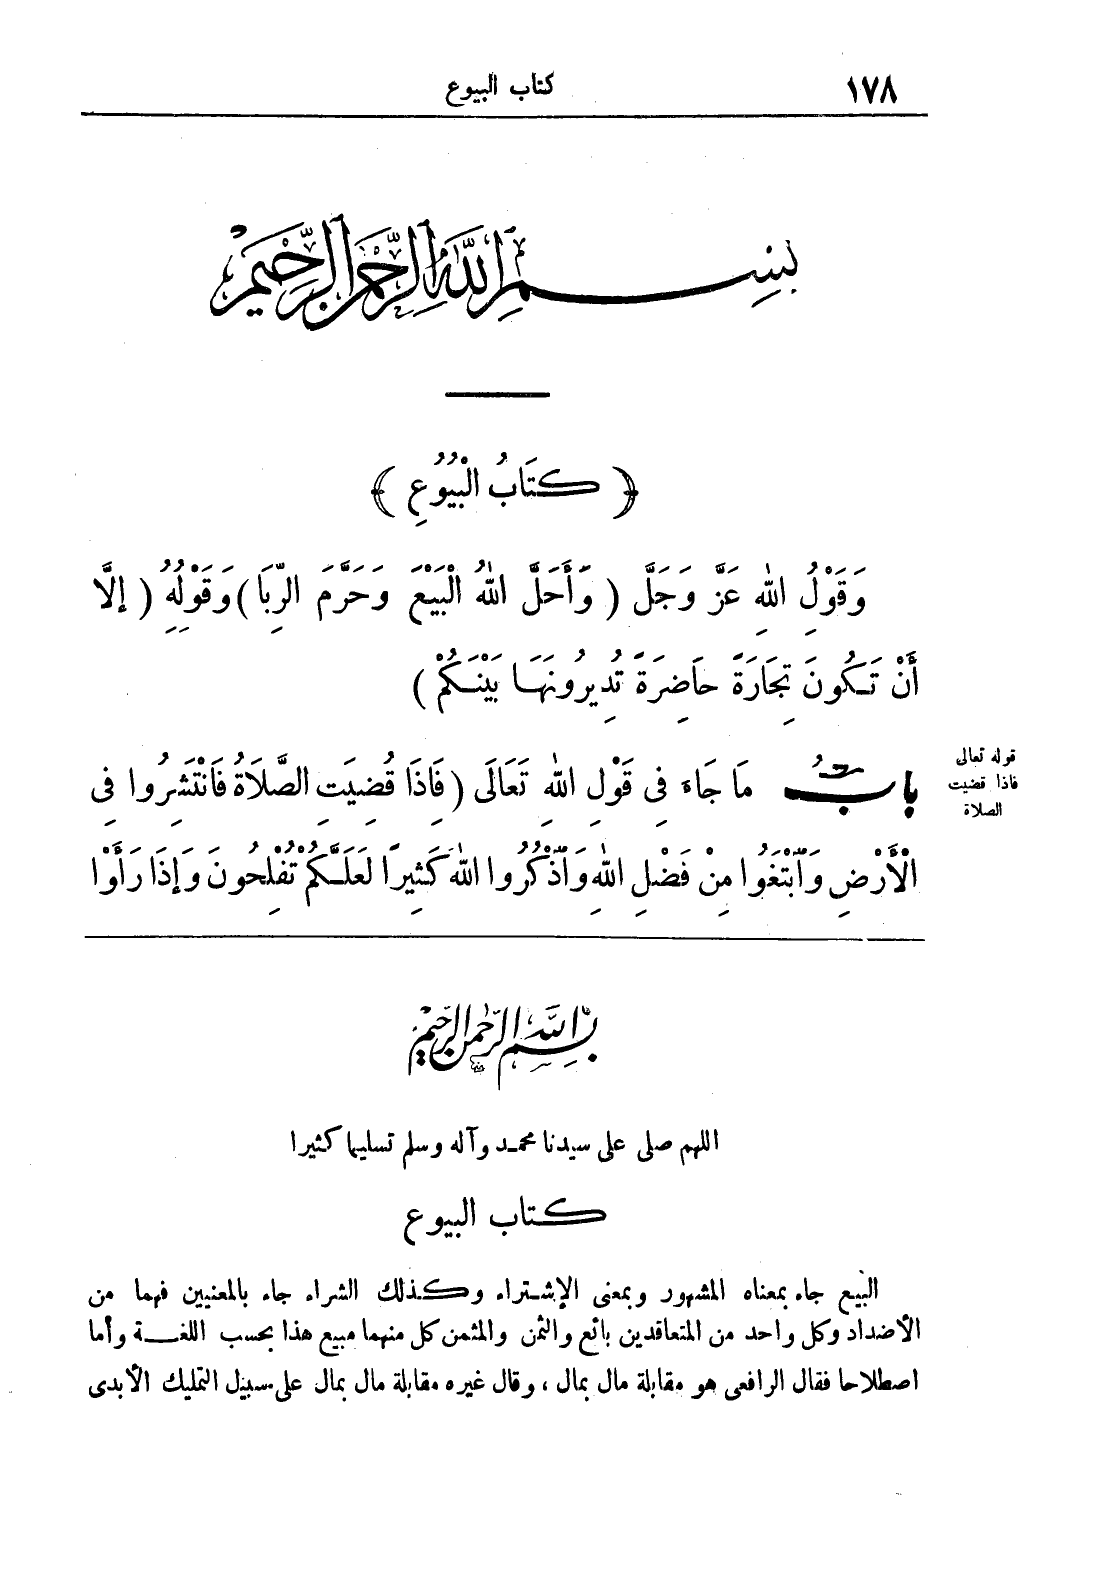 ١٧٨ كتاب البيوع
بِسْمِ اللَّهِ الرَّحْمَنِ الرَّحِيمِ
﴿ كِتَابُ الْبُيُوعِ ﴾
وَقَوْلُ اللهِ عَزَّ وَجَلَّ ( وَأَحَلَّ اللهُ الْبَيْعَ وَحَرَّمَ الرِّبَا ) وَقَوْلُهُ ( إِلَّا
أَنْ تَكُونَ تِجَارَةً حَاضِرَةً تُدِيرُونَهَا بَيْنَكُمْ )
قوله تعالى
فاذا قضيت
الصلاة
بابُ مَا جَاءَ فِي قَوْلِ اللهِ تَعَالَى ( فَإِذَا قُضِيَتِ الصَّلَاةُ فَانْتَشِرُوا فِي
الْأَرْضِ وَابْتَغُوا مِنْ فَضْلِ اللهِ وَاذْكُرُوا اللهَ كَثِيرًا لَعَلَّكُمْ تُفْلِحُونَ وَإِذَا رَأَوْا
بسم الله الرحمن الرحيم
اللهم صلى على سيدنا محمد وآله وسلم تسليما كثيرا
كتاب البيوع
البيع جاء بمعناه المشهور وبمعنى الإشتراء وكذلك الشراء جاء بالمعنيين فهما من
الأضداد وكل واحد من المتعاقدين بائع والثمن والمثمن كل منهما مبيع هذا بحسب اللغة وأما
اصطلاحا فقال الرافعى هو مقابلة مال بمال ، وقال غيره مقابلة مال بمال على سبيل التمليك الأبدى